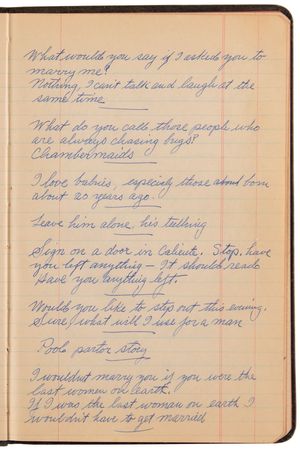 What would you say if I asked you to
marry me?
Nothing, I can't talk and laugh at the
same time
What do you call those people who
are always chasing bugs?
Chambermaids
I love babies, especialy those about born
about 20 years ago.
Leave him alone, his teething
Sign on a door in Caliente. Stop, have
you left anything — It should read
Have you anything left.
Would you like to step out this evening.
Sure, what will I use for a man
Poolo parlor story
I wouldn't marry you if you were the
last women on earth.
If I was, the last woman on earth I
wouldn't have to get married